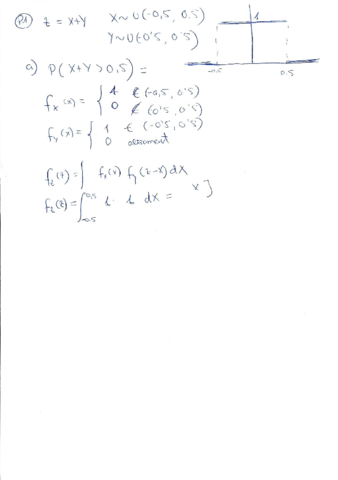 P1) z = x+y   X ~ U(-0,5, 0.5)
Y ~ U(-0'5, 0'5)
1
-0.5   0.5
a) P(X+Y > 0,5) =
f_X(x) = { 1 ∈ (-0,5, 0'5)
0 ∉ (0'5, 0'5)
f_Y(x) = { 1 ∈ (-0'5, 0'5)
0
f_z(z) = ∫ f_x(x) f_y(z-x) dx
f_z(z) = ∫_{-0.5}^{0,5} 1 · 1 dx = x ]